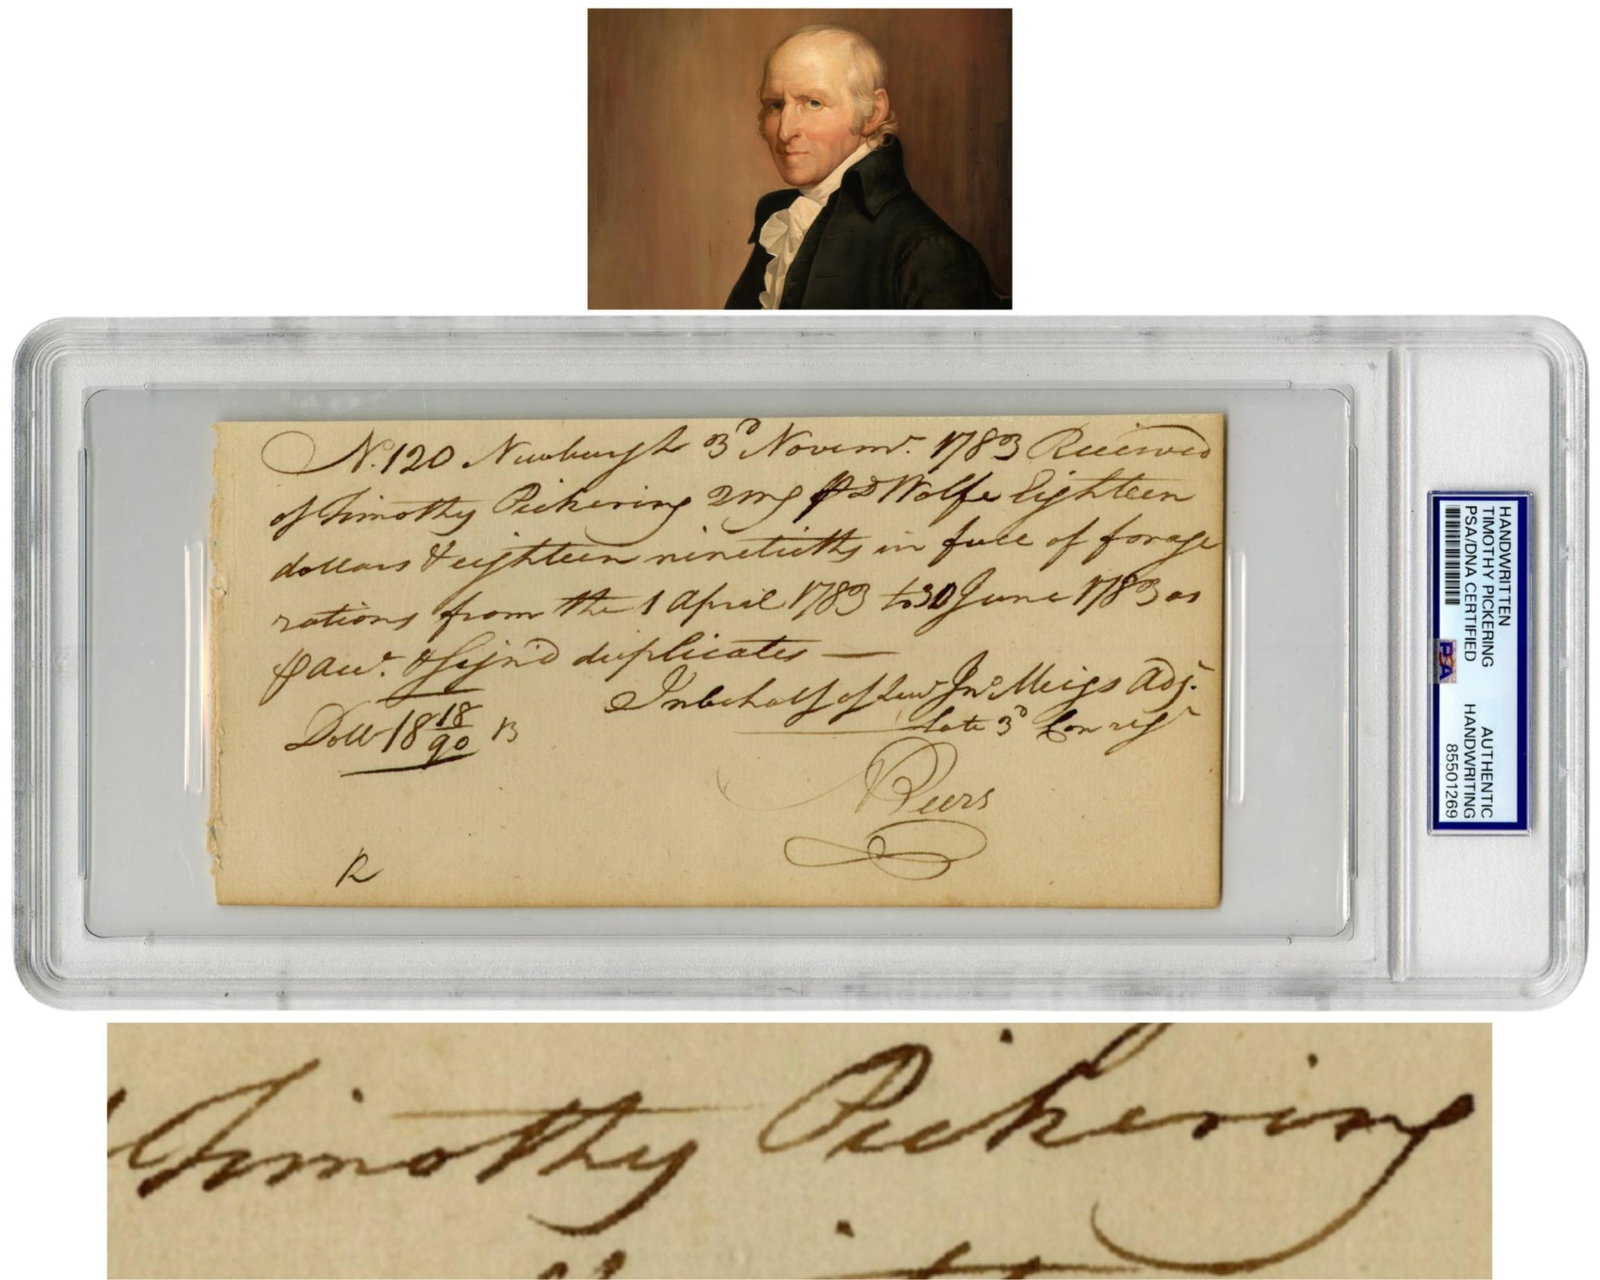 N. 120 Newburgh 3ᴰ Novemr. 1783 Received
of Timothy Pickering QMG ⅌ D Wolfe Eighteen
dollars & eighteen ninetieths in full of forage
rations from the 1 April 1783 to 30 June 1783 as
⅌ acct. & sign'd duplicates —
In behalf of Lieut Jnº Meigs Adj.
late 3ᴰ Con regt
Dolls 18 18/90 B
R
HANDWRITTEN
TIMOTHY PICKERING
PSA/DNA CERTIFIED
PSA
AUTHENTIC
HANDWRITING
85501269
Timothy Pickering